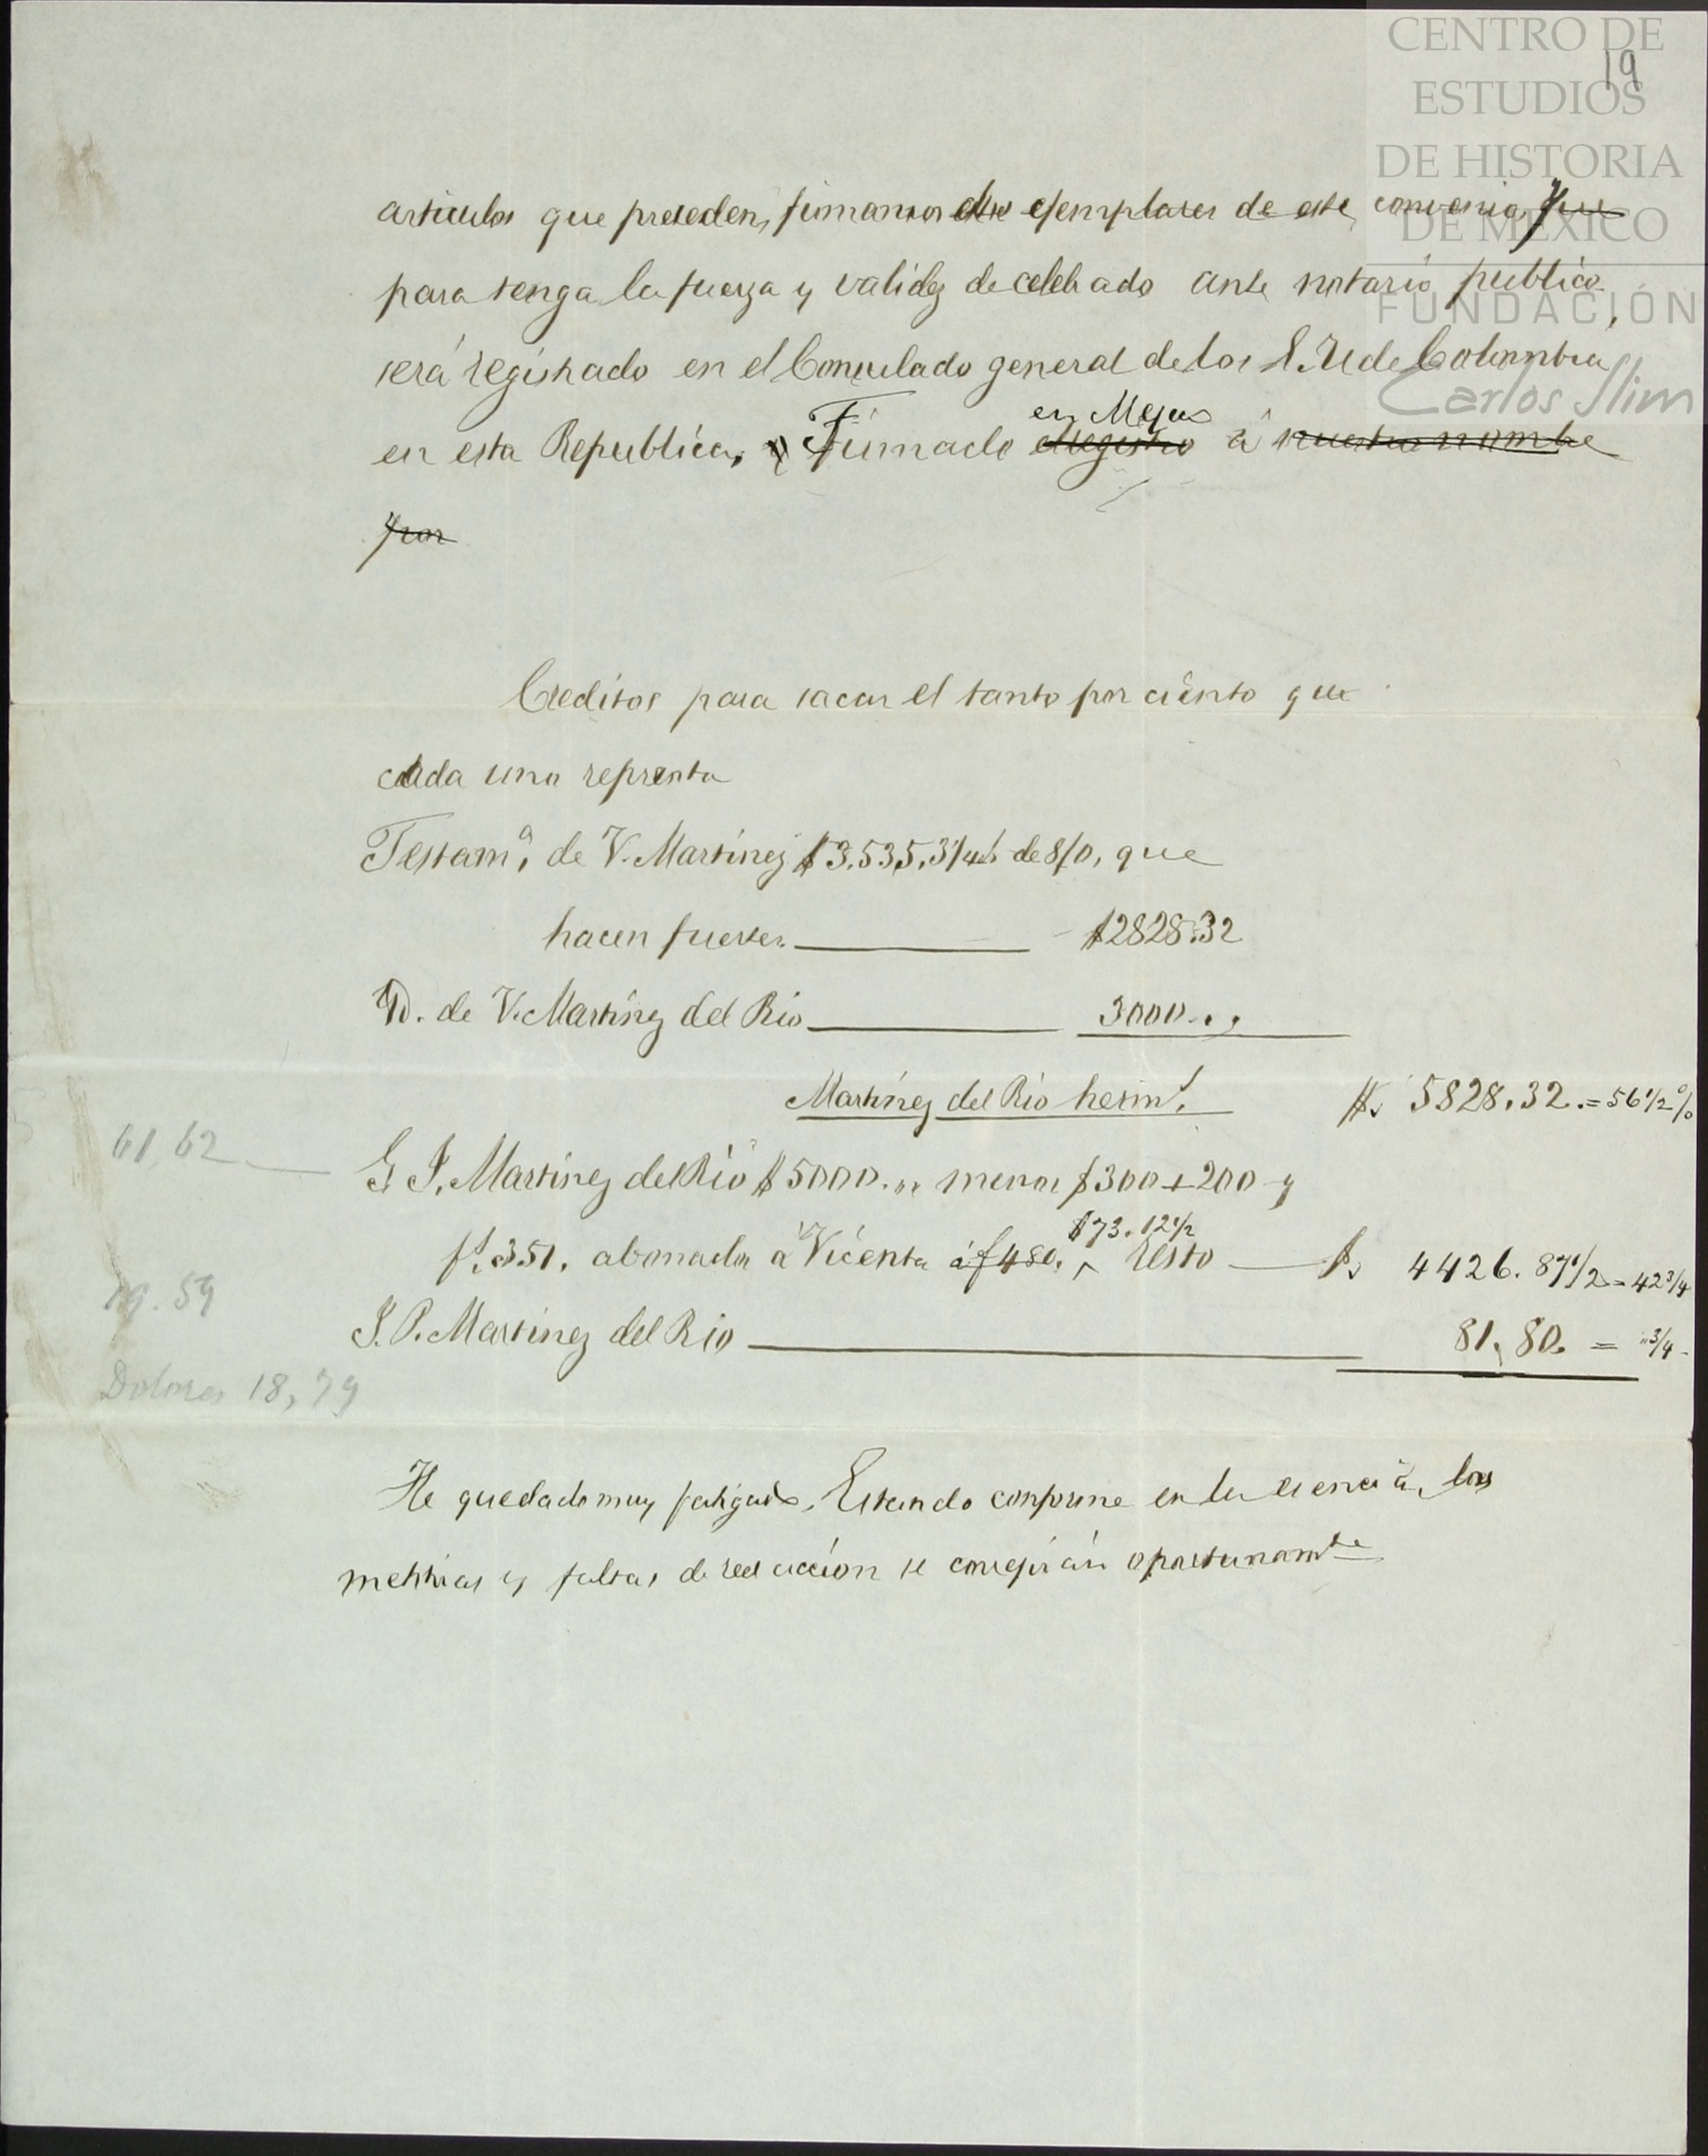 CENTRO DE
ESTUDIOS
DE HISTORIA
DE MÉXICO
FUNDACIÓN
Carlos Slim
19
articulos que preceden, firmamos ejemplares de este convenio, que
para tenga la fuerza y validez de celebrado ante notario publico,
será registrado en el Consulado general de los E. U de Colombia
en Mejico
en esta Republica. y Firmado el registro á nuestro nombre
por
Creditos para sacar el tanto por ciento que
cada uno reprenta
Testamª. de V. Martinez $3.535.3/4 de 8/0, que
hacen fuertes $2828.32
D. de V. Martinez del Rio 3000..,
Martinez del Rio hermˢ. $. 5828.32.=56 1/2 %
61,62
G I. Martinez del Rio $5000. „ menos $300+200 y
$73.12 1/2
fˢ. 351. abonados a Vicenta á f480. ^ resto $. 4426.87 1/2=42 3/4
19.59
J. P. Martinez del Rio 81.80. = „3/4
Dolores 18,79
He quedado muy fatigado. Estando conforme en la esencia, las
mentiras y faltas de redaccion se corregirán oportunamᵗᵉ